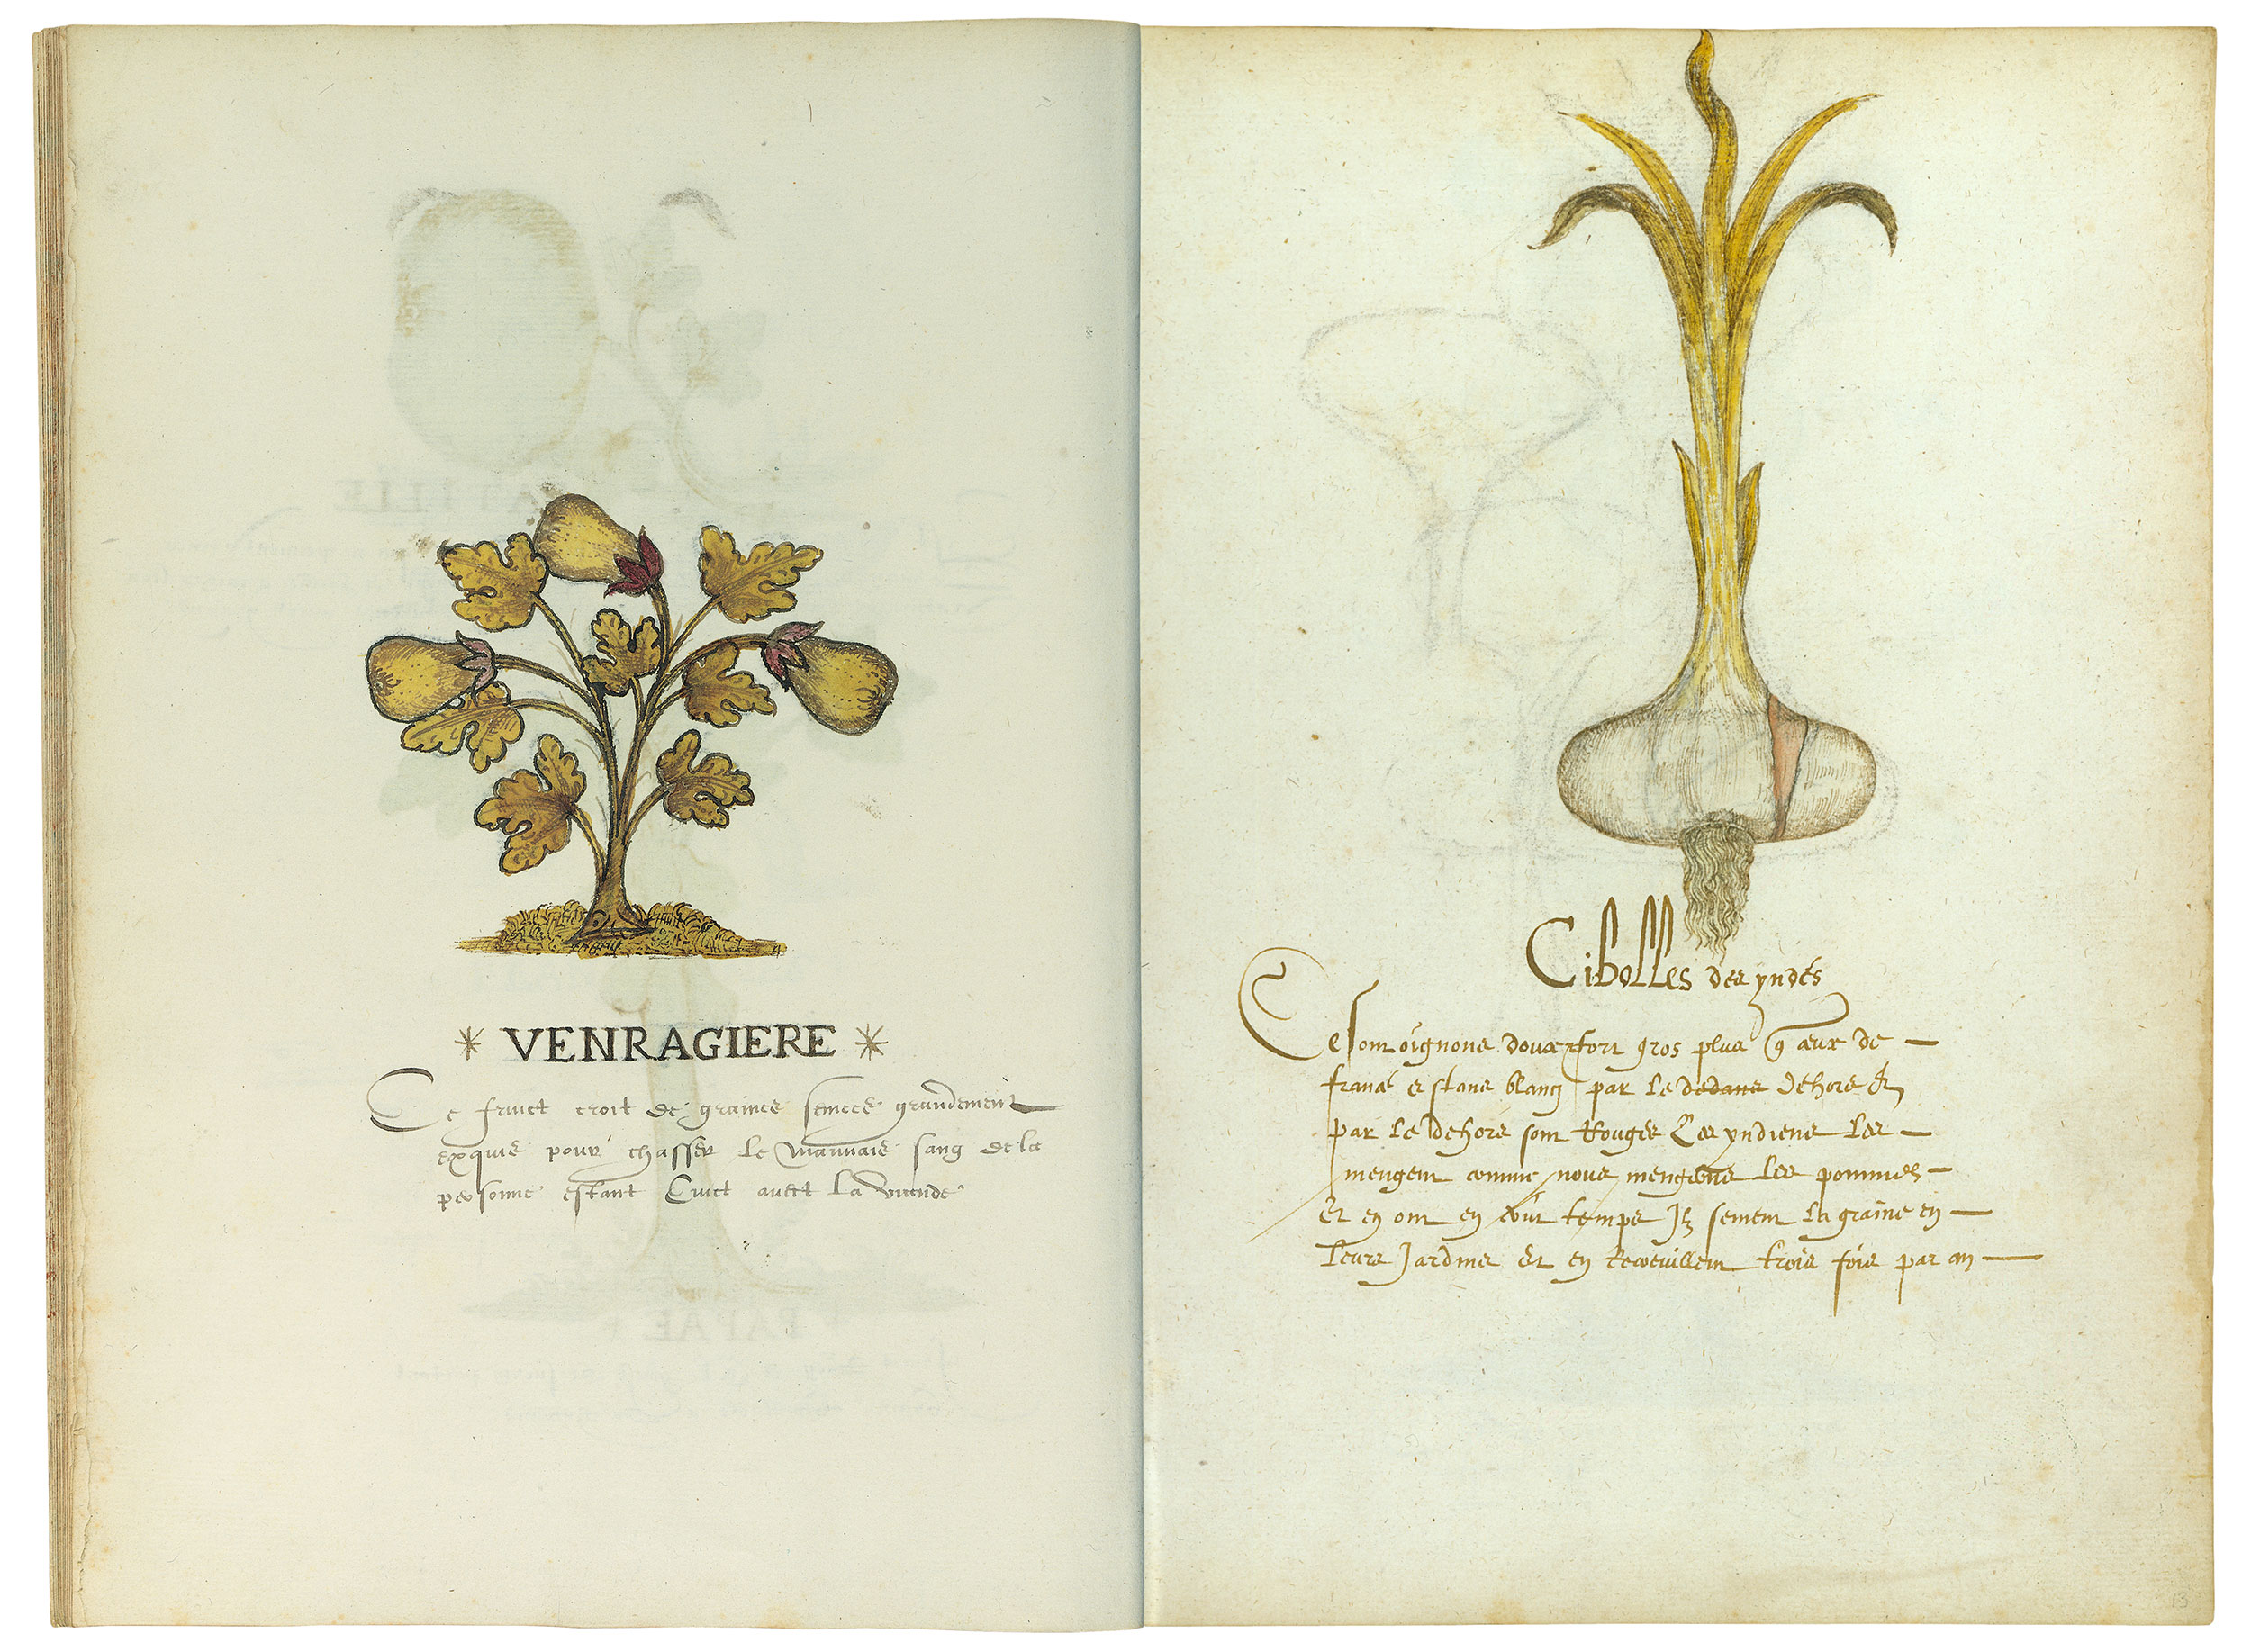 * VENRAGIERE *
Ce fruict croit de graines semees grandement
exquis pour chasser le mauvais sang de la
personne estant Cuict avect la viende
Cibolles des yndes
Ce sont oignons doux fort gros plus q ceux de
france estans blancq par le dedans dehors &
par le dehors sont Rouges Les yndiens les
mengent comme nous mengeons les pommes
Et en ont en tout temps Ilz sement la graine en
leurs Jardins Et en Recoeuillent trois fois par an
13